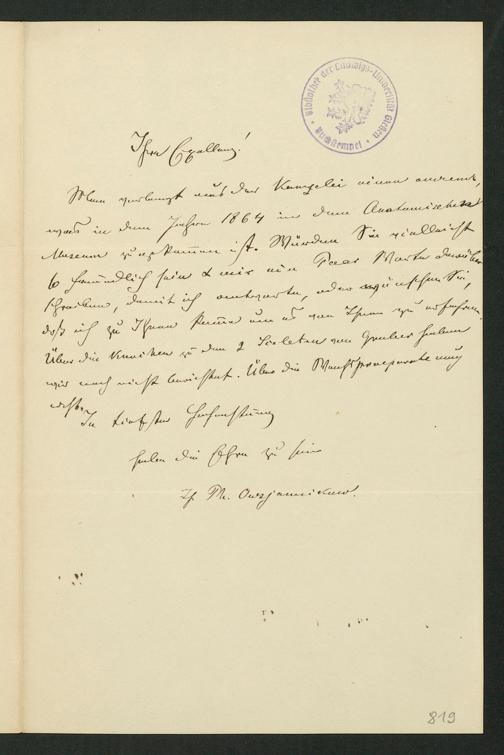 Bibliothek der Ludwigs-Universität Gießen
Ihre Excellenz!
Man verlangt aus der Kanzelei einen
was in dem Jahre 1864 in dem Anatomischen
Museum zugekommen ist. Würden Sie vielleicht
so freundlich sein & mir ein Paar Worte darüber
schreiben, damit ich antworte, oder wünschen Sie,
daß ich zu Ihnen komme um es von Ihnen zu erfahren.
Über die Knochen zu den 2 Skeleten von Gruber haben
wir noch nicht berichtet. Über die Wachspraeparate auch
nicht.
In tiefster Hochachtung
haben die Ehre zu sein
Ph. Owsjannikow.
819